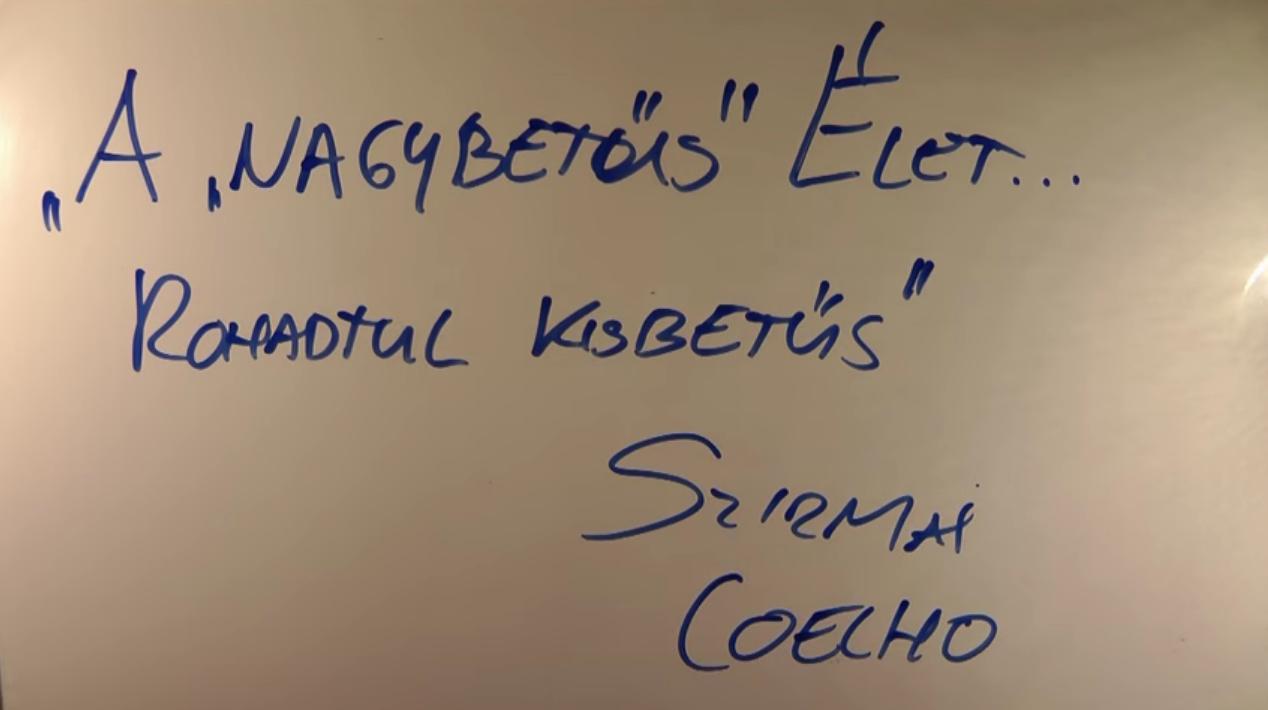 „A „NAGYBETŰS" ÉLET...
ROHADTUL KISBETŰS"
SZIRMAI
COELHO